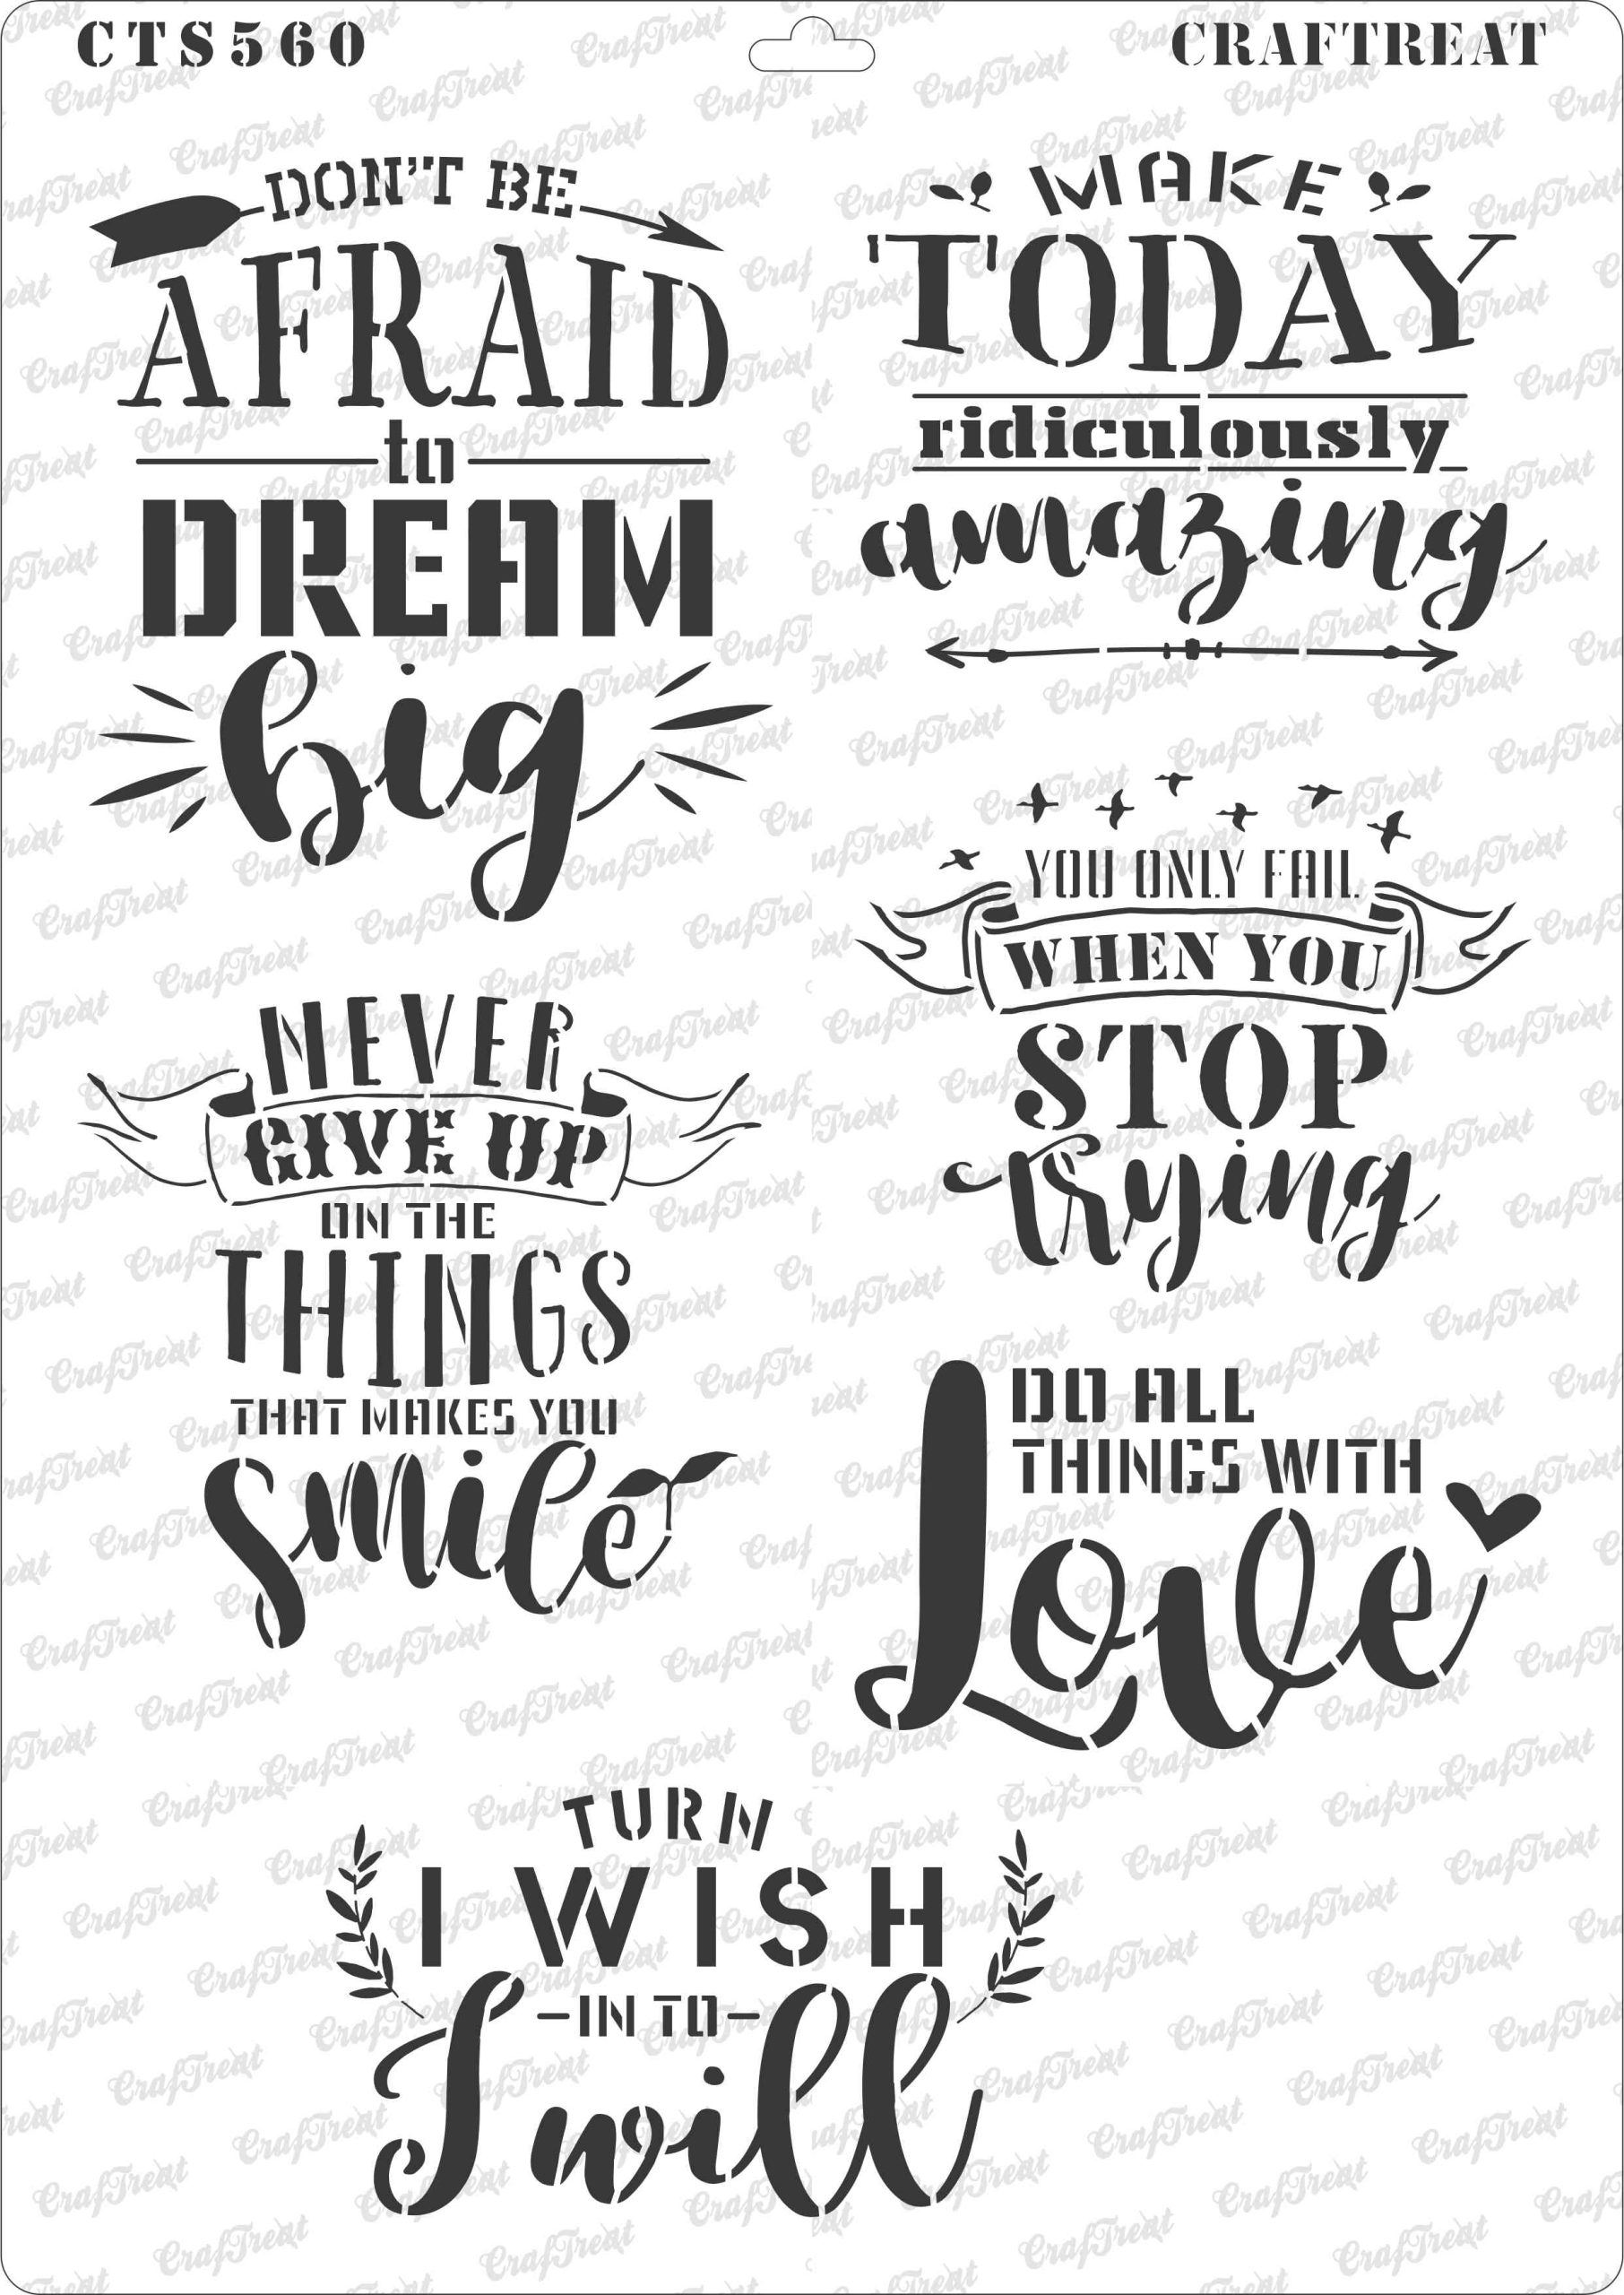 CTS560
CRAFTREAT
DON'T BE
AFRAID
to
DREAM
big
MAKE
TODAY
ridiculously
amazing
YOU ONLY FAIL
WHEN YOU
STOP
trying
NEVER
GIVE UP
ON THE
THINGS
THAT MAKES YOU
smile
DO ALL
THINGS WITH
Love
TURN
I WISH
-IN TO-
I will
CrafTreat